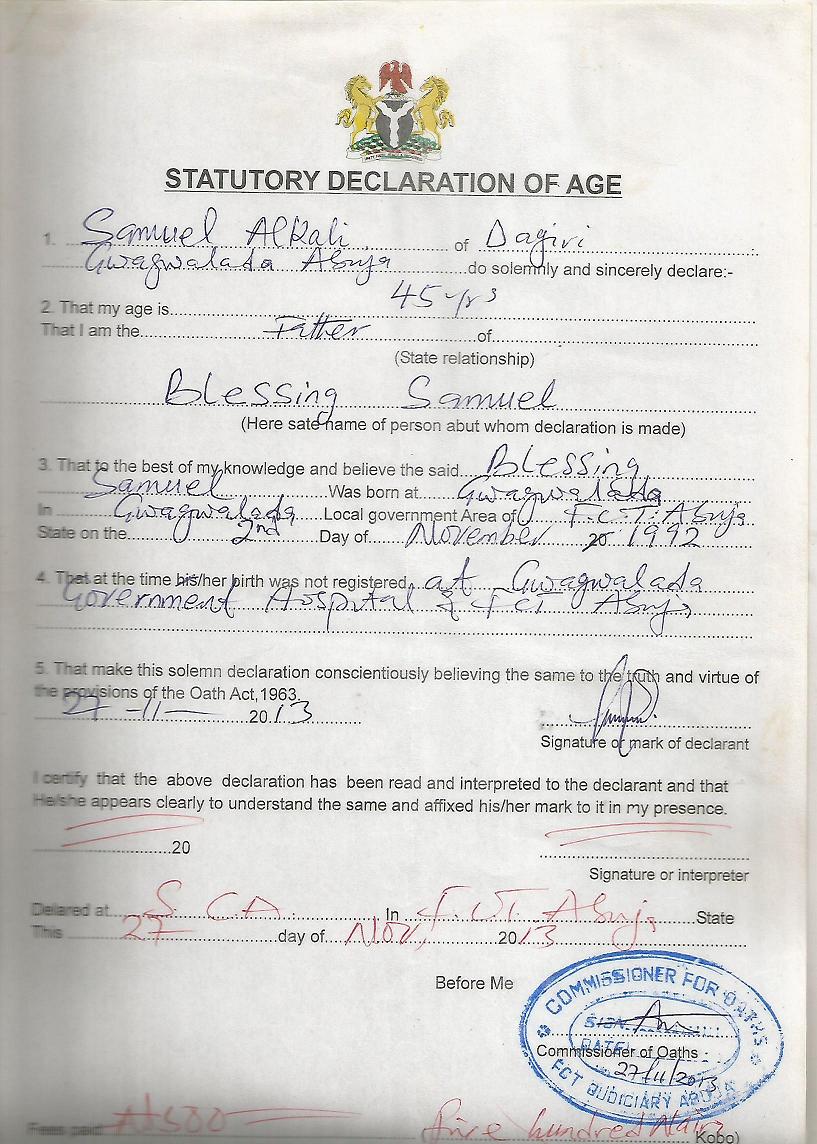 STATUTORY DECLARATION OF AGE
1. Samuel Alkali of Dagiri
Gwagwalada Abuja do solemnly and sincerely declare:-
2. That my age is 45 yrs
That I am the Father of
(State relationship)
Blessing Samuel
(Here sate name of person abut whom declaration is made)
3. That to the best of my knowledge and believe the said Blessing
Samuel Was born at Gwagwalada
In Gwagwalada Local government Area of F.C.T. Abuja
State on the 2nd Day of November 20 1992
4. That at the time his/her birth was not registered at Gwagwalada
Government Hospital FCT Abuja
5. That make this solemn declaration conscientiously believing the same to the truth and virtue of
the provisions of the Oath Act,1963.
27 -11- 2013
Signature or mark of declarant
I certify that the above declaration has been read and interpreted to the declarant and that
He/she appears clearly to understand the same and affixed his/her mark to it in my presence.
20
Signature or interpreter
Delared at S CA In F.C.T. Abuja State
This 27 day of Nov, 2013
Before Me
COMMISSIONER FOR OATHS
SIGN.
DATE:
Commissioner of Oaths
27/11/2013
FCT JUDICIARY ABUJA
Fees paid N500 (five hundred Naira Kobo)